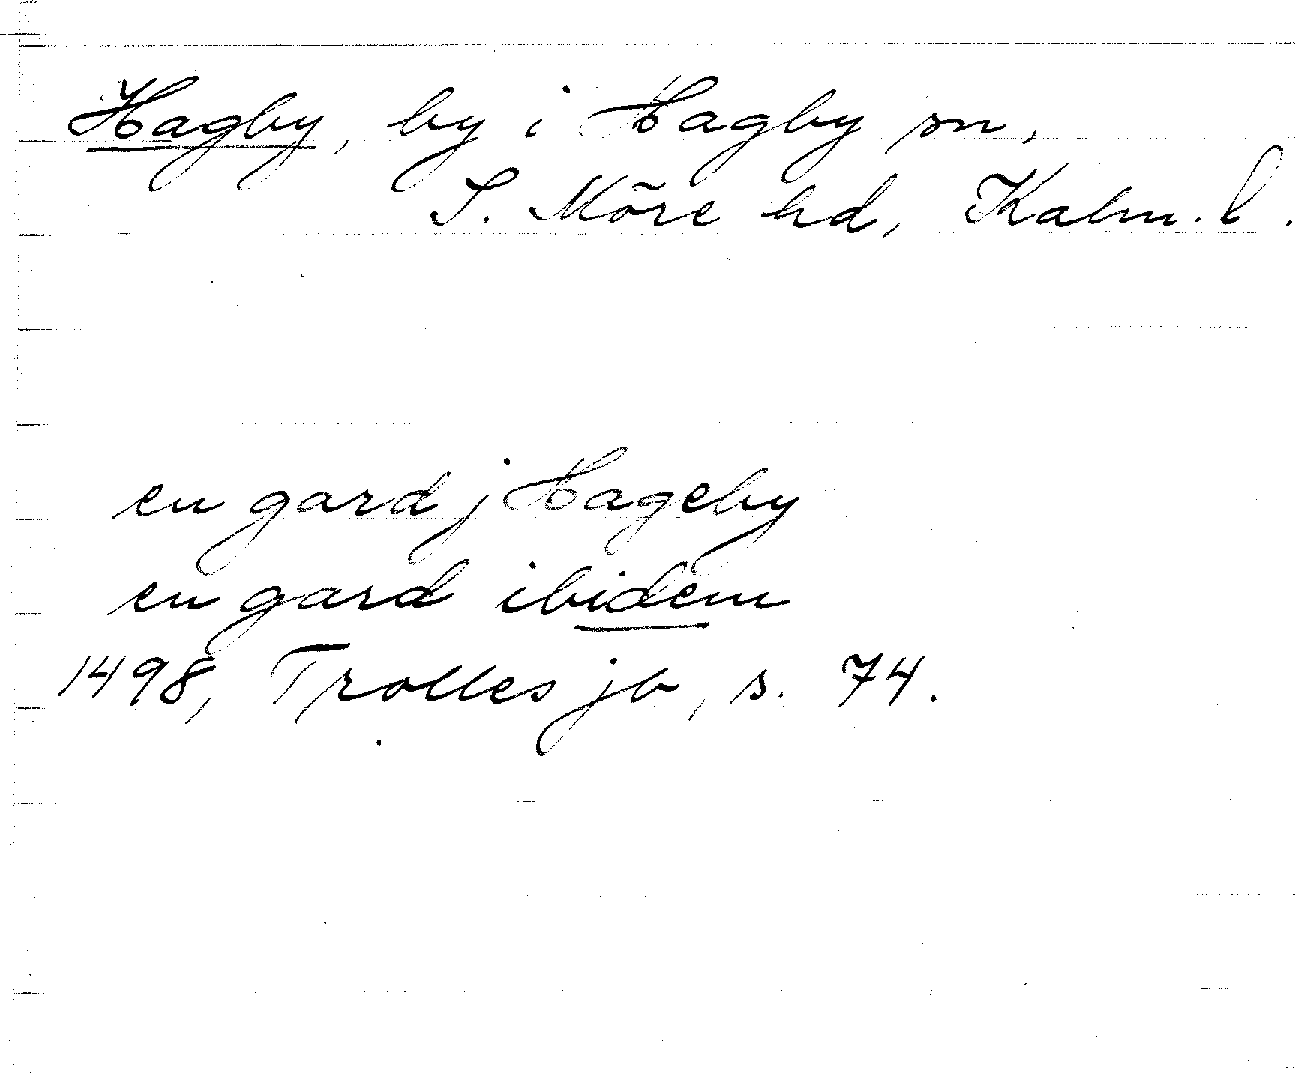 Hagby, by i Hagby sn,
S. Möre hd, Kalm. l.
en gard j Hageby
en gard ibidem
1498, Trolles jb, s. 74.